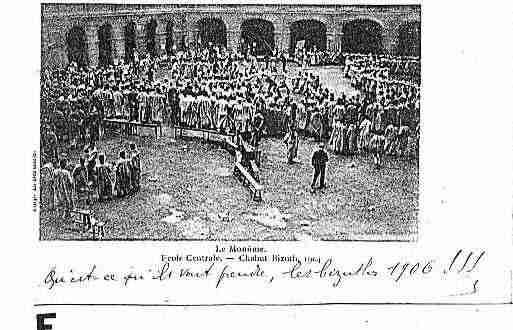 Le Monôme.
Ecole Centrale. — Chahut Bizuth, 1904
Qu'est-ce qu'ils vont prendre, les bizuths 1906 !!!
E